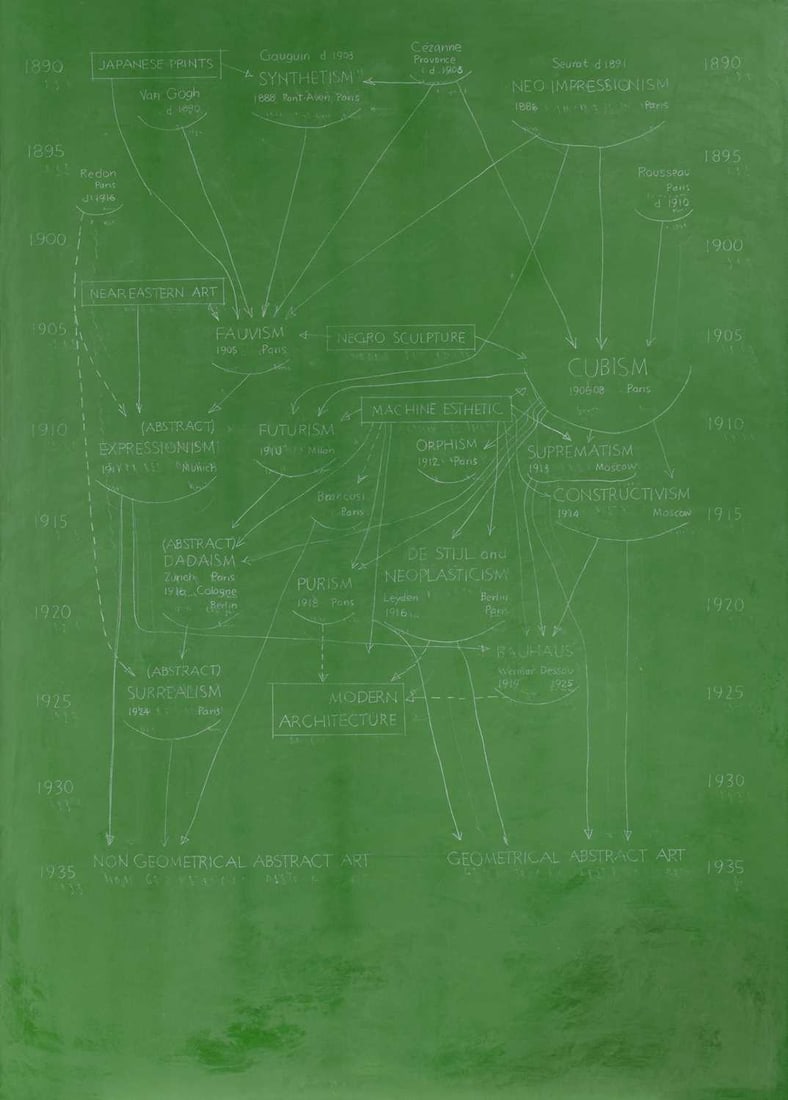 1890
JAPANESE PRINTS
Gauguin d 1903
SYNTHETISM
1888 Pont-Aven, Paris
Cézanne
Provence
d 1906
Seurat d 1891
NEO IMPRESSIONISM
1886
Paris
1890
Van Gogh
d 1890
1895
1895
Redon
Paris
d 1916
Rousseau
Paris
d 1910
1900
1900
NEAR EASTERN ART
1905
FAUVISM
1905 Paris
NEGRO SCULPTURE
1905
CUBISM
1906-08 Paris
1910
(ABSTRACT)
EXPRESSIONISM
1911 Munich
FUTURISM
1910 Milan
MACHINE ESTHETIC
ORPHISM
1912 Paris
SUPREMATISM
1913 Moscow
CONSTRUCTIVISM
1914 Moscow
1910
Brancusi
Paris
1915
1915
(ABSTRACT)
DADAISM
Zurich Paris
1916 Cologne
Berlin
PURISM
1918 Paris
DE STIJL and
NEOPLASTICISM
Leyden Berlin
1916 Paris
1920
1920
BAUHAUS
Weimar Dessau
1919 1925
(ABSTRACT)
SURREALISM
1924 Paris
1925
MODERN
ARCHITECTURE
1925
1930
1930
1935
NON GEOMETRICAL ABSTRACT ART
GEOMETRICAL ABSTRACT ART
1935